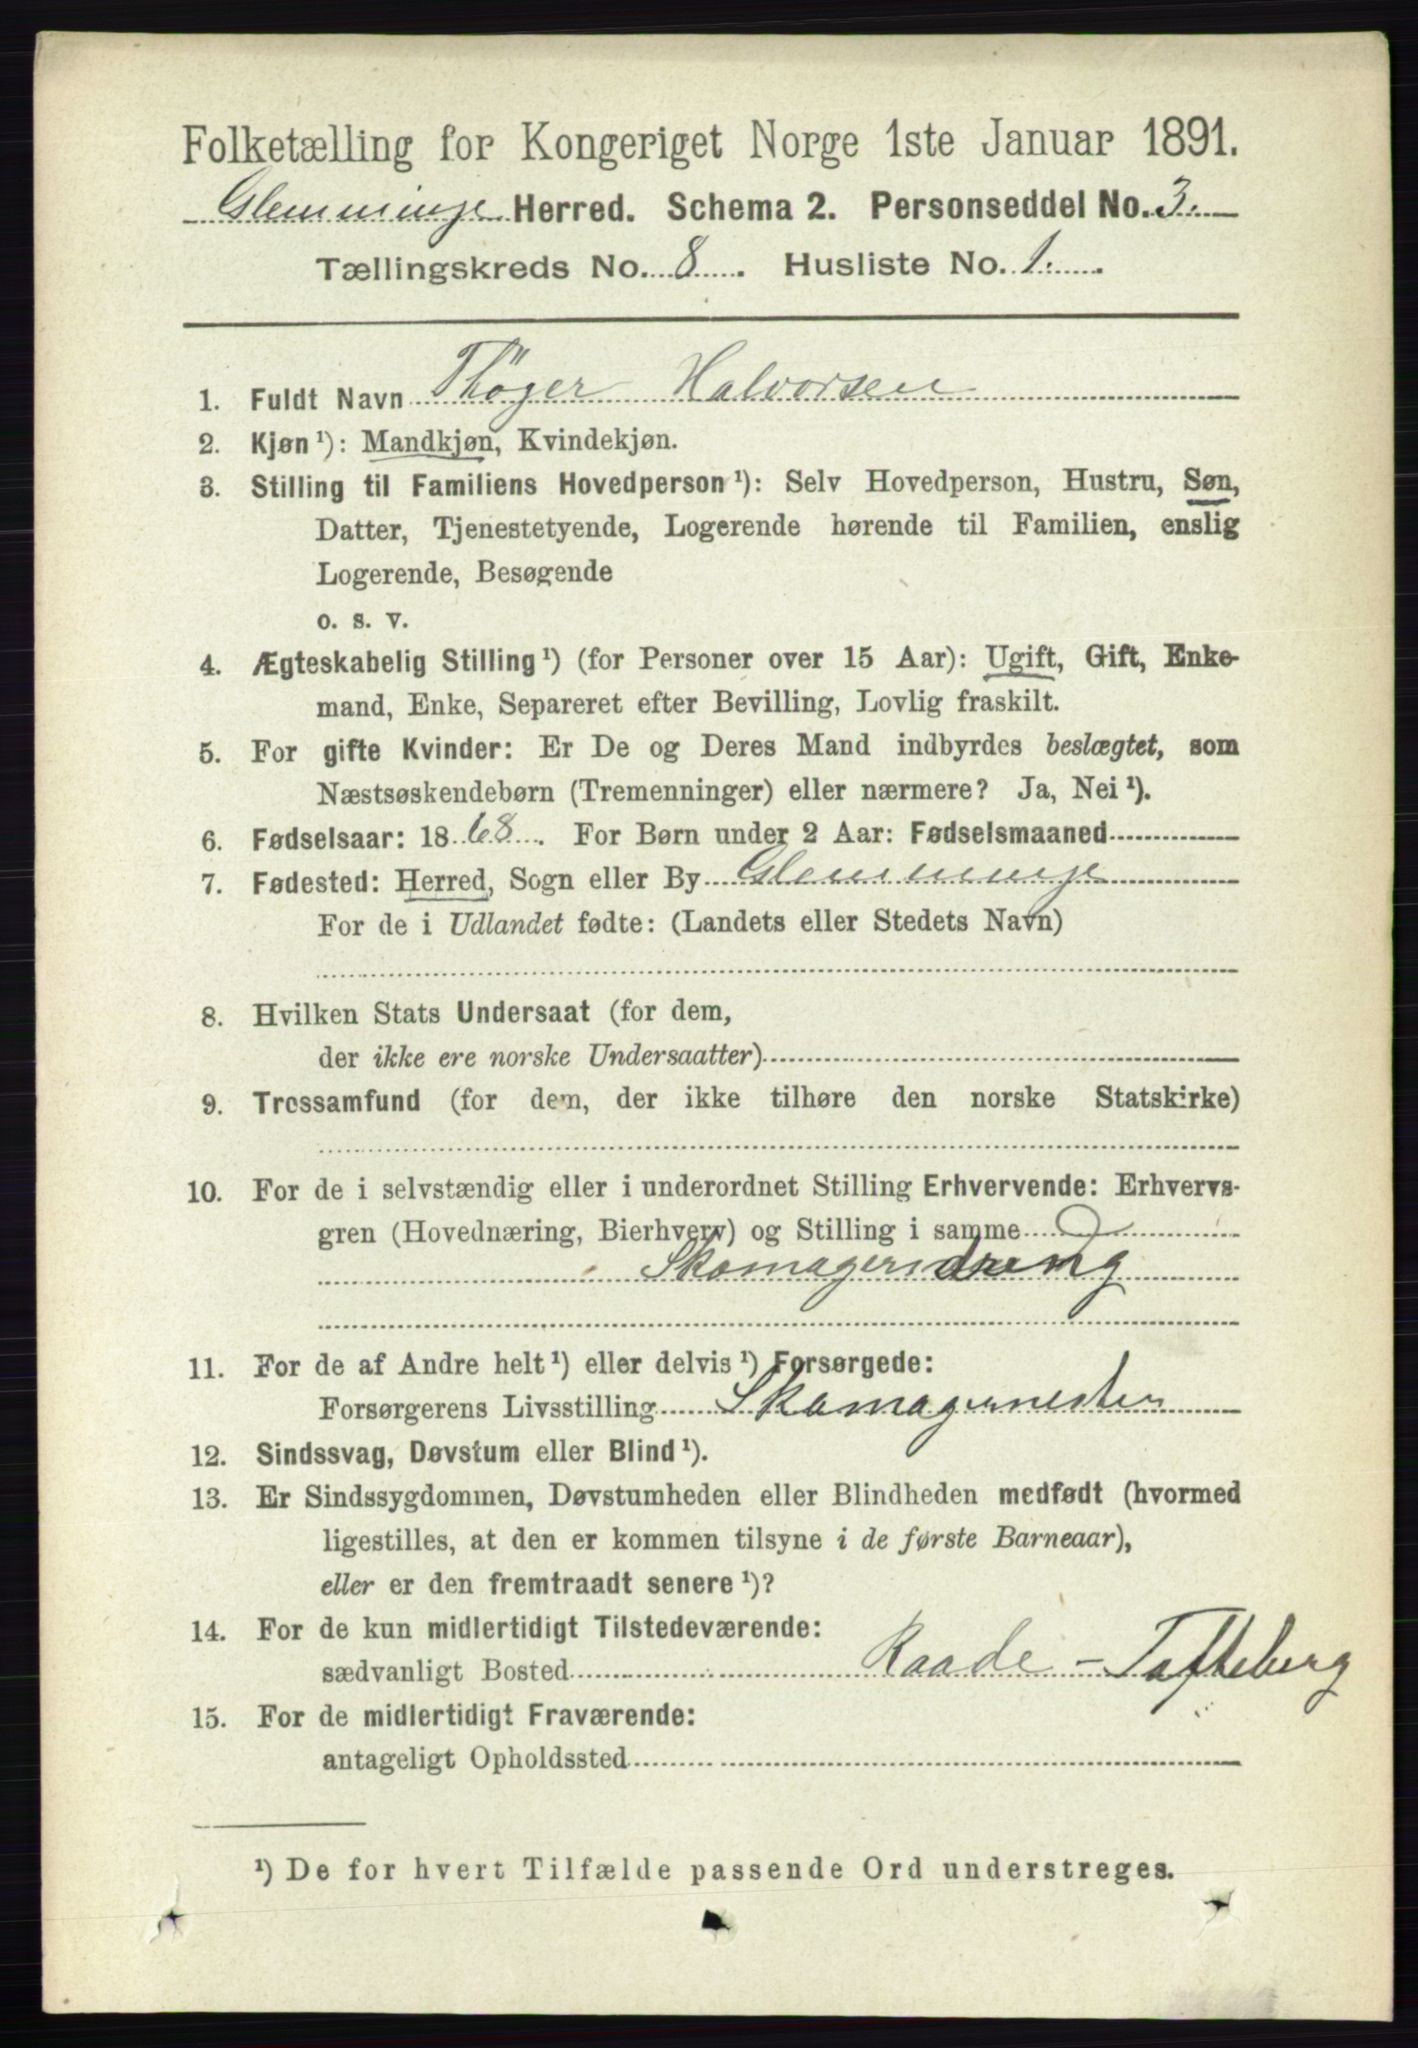 Folketælling for Kongeriget Norge 1ste Januar 1891.
Glemminge Herred. Schema 2. Personseddel No. 3.
Tællingskreds No. 8. Husliste No. 1.
1. Fuldt Navn Thöger Halvorsen
2. Kjøn ¹): Mandkjøn, Kvindekjøn.
3. Stilling til Familiens Hovedperson ¹): Selv Hovedperson, Hustru, Søn,
Datter, Tjenestetyende, Logerende hørende til Familien, enslig
Logerende, Besøgende
o. s. v.
4. Ægteskabelig Stilling ¹) (for Personer over 15 Aar): Ugift, Gift, Enke-
mand, Enke, Separeret efter Bevilling, Lovlig fraskilt.
5. For gifte Kvinder: Er De og Deres Mand indbyrdes beslægtet, som
Næstsøskendebørn (Tremenninger) eller nærmere? Ja, Nei ¹).
6. Fødselsaar: 1868. For Børn under 2 Aar: Fødselsmaaned
7. Fødested: Herred, Sogn eller By Glemminge
For de i Udlandet fødte: (Landets eller Stedets Navn)
8. Hvilken Stats Undersaat (for dem,
der ikke ere norske Undersaatter)
9. Trossamfund (for dem, der ikke tilhøre den norske Statskirke)
10. For de i selvstændig eller i underordnet Stilling Erhvervende: Erhvervs-
gren (Hovednæring, Bierhverv) og Stilling i samme
Skomagerdreng
11. For de af Andre helt ¹) eller delvis ¹) Forsørgede:
Forsørgerens Livsstilling Skomagermester
12. Sindssvag, Døvstum eller Blind ¹).
13. Er Sindssygdommen, Døvstumheden eller Blindheden medfødt (hvormed
ligestilles, at den er kommen tilsyne i de første Barneaar),
eller er den fremtraadt senere ¹)?
14. For de kun midlertidigt Tilstedeværende:
sædvanligt Bosted Raade - Tofteberg
15. For de midlertidigt Fraværende:
antageligt Opholdssted
¹) De for hvert Tilfælde passende Ord understreges.